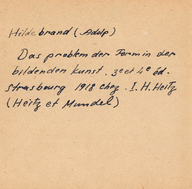 Hildebrand (Adolp)
Das problem der Form in der
bildenden Kunst. 3e et 4e éd.
Strasbourg 1918 chez. I. H. Heitz
(Heitz et Mundel)